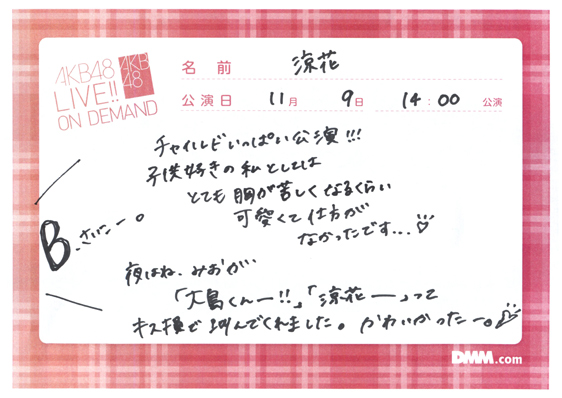 AKB48
LIVE!!
ON DEMAND
AKB
48
名前 涼花
公演日 11月 9日 14:00 公演
チャイルドいっぱい公演!!!
子供好きの私としては
とても胸が苦しくなるくらい
可愛くて仕方が
なかったです...♡
B
さいたー。
夜はね、みおが
「大島くんー!!」「涼花ー」って
キス損で叫んでくれました。かわいかったー。♡
DMM.com